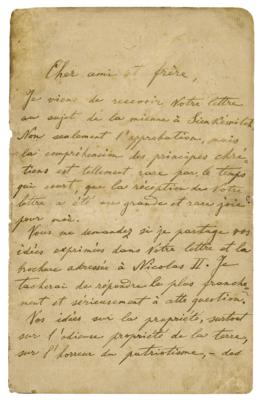 Cher ami et frère,
Je viens de recevoir Votre lettre
au sujet de la mienne à Sienkewitch.
Non seulement l'approbation, mais
la compréhension des principes chré-
tiens est tellement rare par le temps
qui court, que la réception de Votre
lettre a été une grande et rare joie
pour moi.
Vous me demandez si je partage vos
idées exprimées dans Votre lettre et la
brochure adressée à Nicolas II. Je
tacherai de répondre le plus franche-
ment et sérieusement à cette question.
Vos idées sur la propriété, surtout
sur l'odieuse propriété de la terre,
sur l'horreur du patriotisme, – des